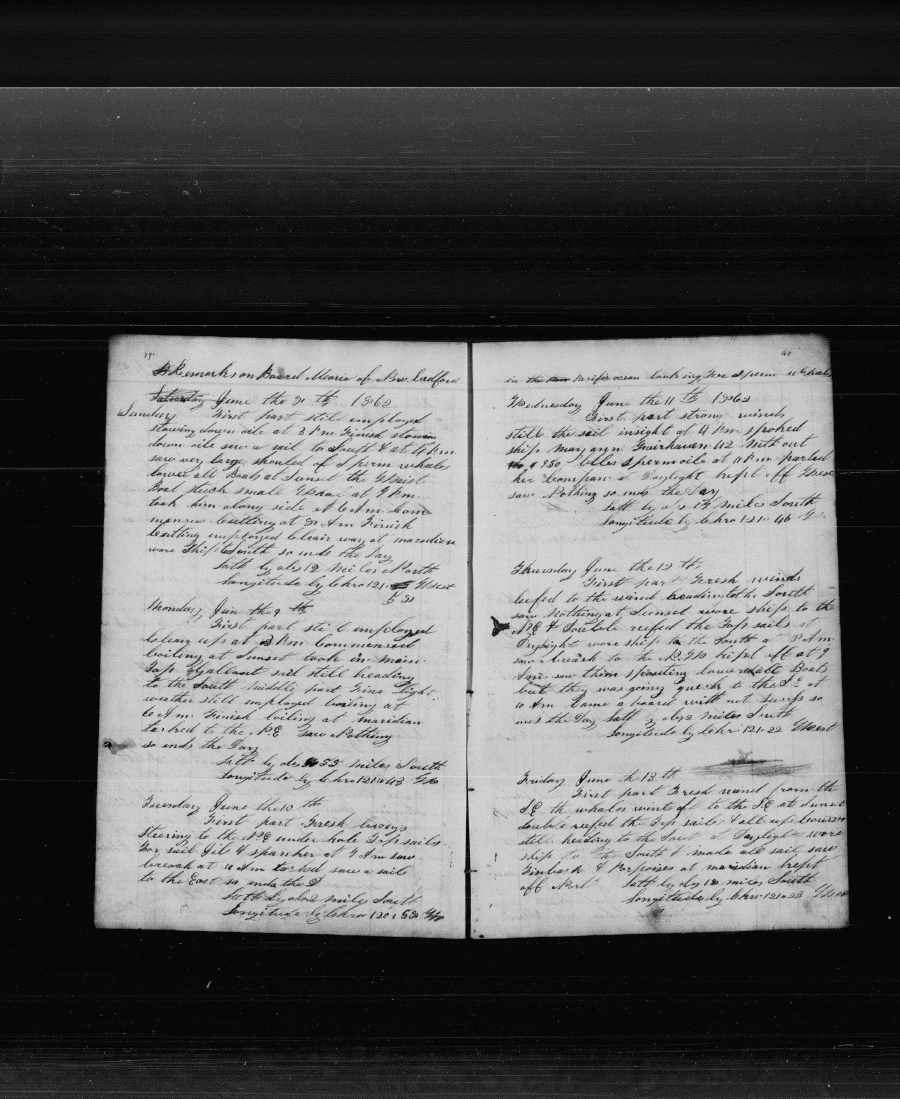 Remarks on Board Maria of New Bedford
Saturday June the 8 th 1862
Sunday First part still employed
stowing down oile at 2 Pm Finish stowin
down oile saw a sail to South & at 4 Pm
saw very large shoules of Sperm whales
lower all Boats at Sunset the Waist
Boat stuck small Whale at 7 Pm
took him along side at 6 Am Com
mence Cutting at 8 Am Finish
Cutting employed Clear way at meredian
wore Ship South so ends the Day
Latt by obs 12 Miles North
Longitude by Chro 121 West
Monday Jun the 9 th
First part still employed
to cleay up at Pm Commenced
boiling at Sunset took in main
Top Gallant sail still heading
to the South middle part Fine Light
weather still employed boiling at
6 Am Finish boiling at maridian
tacked to the NE Saw Nothing
so ends the Day
Latt by obs 53 miles South
Longitude by Chro 121 48 We
Tuesday June the 10 th
First part Fresh breeze
steering to the NE under hole Top sails
For sail Jib & spanker at 7 Am saw
breach at 10 Am tacked saw a sail
to the East so ends the D
Latt by obs 2 miles South
Longitude by Chro 120 53 We
40
in the Pasific ocean looking For Sperm Whales
Wednesday June the 11 th 1862
First part strong winds
still the sail insight at 4 Pm spoked
ship mary ann Fairhaven 42 Mth out
950 bbles sperm oile at 11 Pm parted
her Compan at Daylight kept off West
saw Nothing so ends the Day
Latt by obs 14 miles South
Longitude by Chro 121 46 W
Thuesday June the 12 th
First part Fresh winds
leufed to the wind heading to the South
saw Nothing at Sunset wore ship to the
NE & Double reefed the Top sails at
Daylight wore ship to the South at 8 Am
saw breach to the N W kept off at 9
Am saw them spouting lower all Boats
but they was going quick to the SE at
10 Am Came aboard with out susess so
ends the Day Latt by obs 2 miles South
Longitude by Chr 121 22 West
Friday June th 13 th
First part Fresh wind from the
SE th whales went of to the SE at Sunset
double reefed the Top sails & all up Courses
still heading to the Sout at Daylight wore
ship to the South & made all sail saw
Finback & Porpoises at meridian kept
off Nort Latt by obs 12 miles South
Longitude by Chro 121 23 West